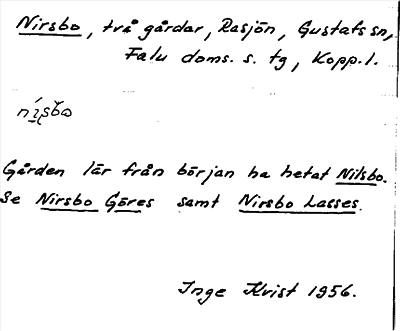 Nirsbo, två gårdar, Rasjön, Gustafs sn,
Falu doms. s. tg, Kopp. l.
Gården lär från början ha hetat Nilsbo.
Se Nirsbo Göres samt Nirsbo Lasses.
Inge Kvist 1956.